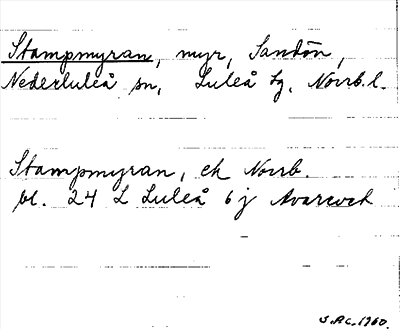 Stampmyran, myr, Sandön,
Nederluleå sn, Luleå tg, Norrb. l.
Stampmyran, ek Norrb.
bl. 24 L Luleå 6 j
1960.